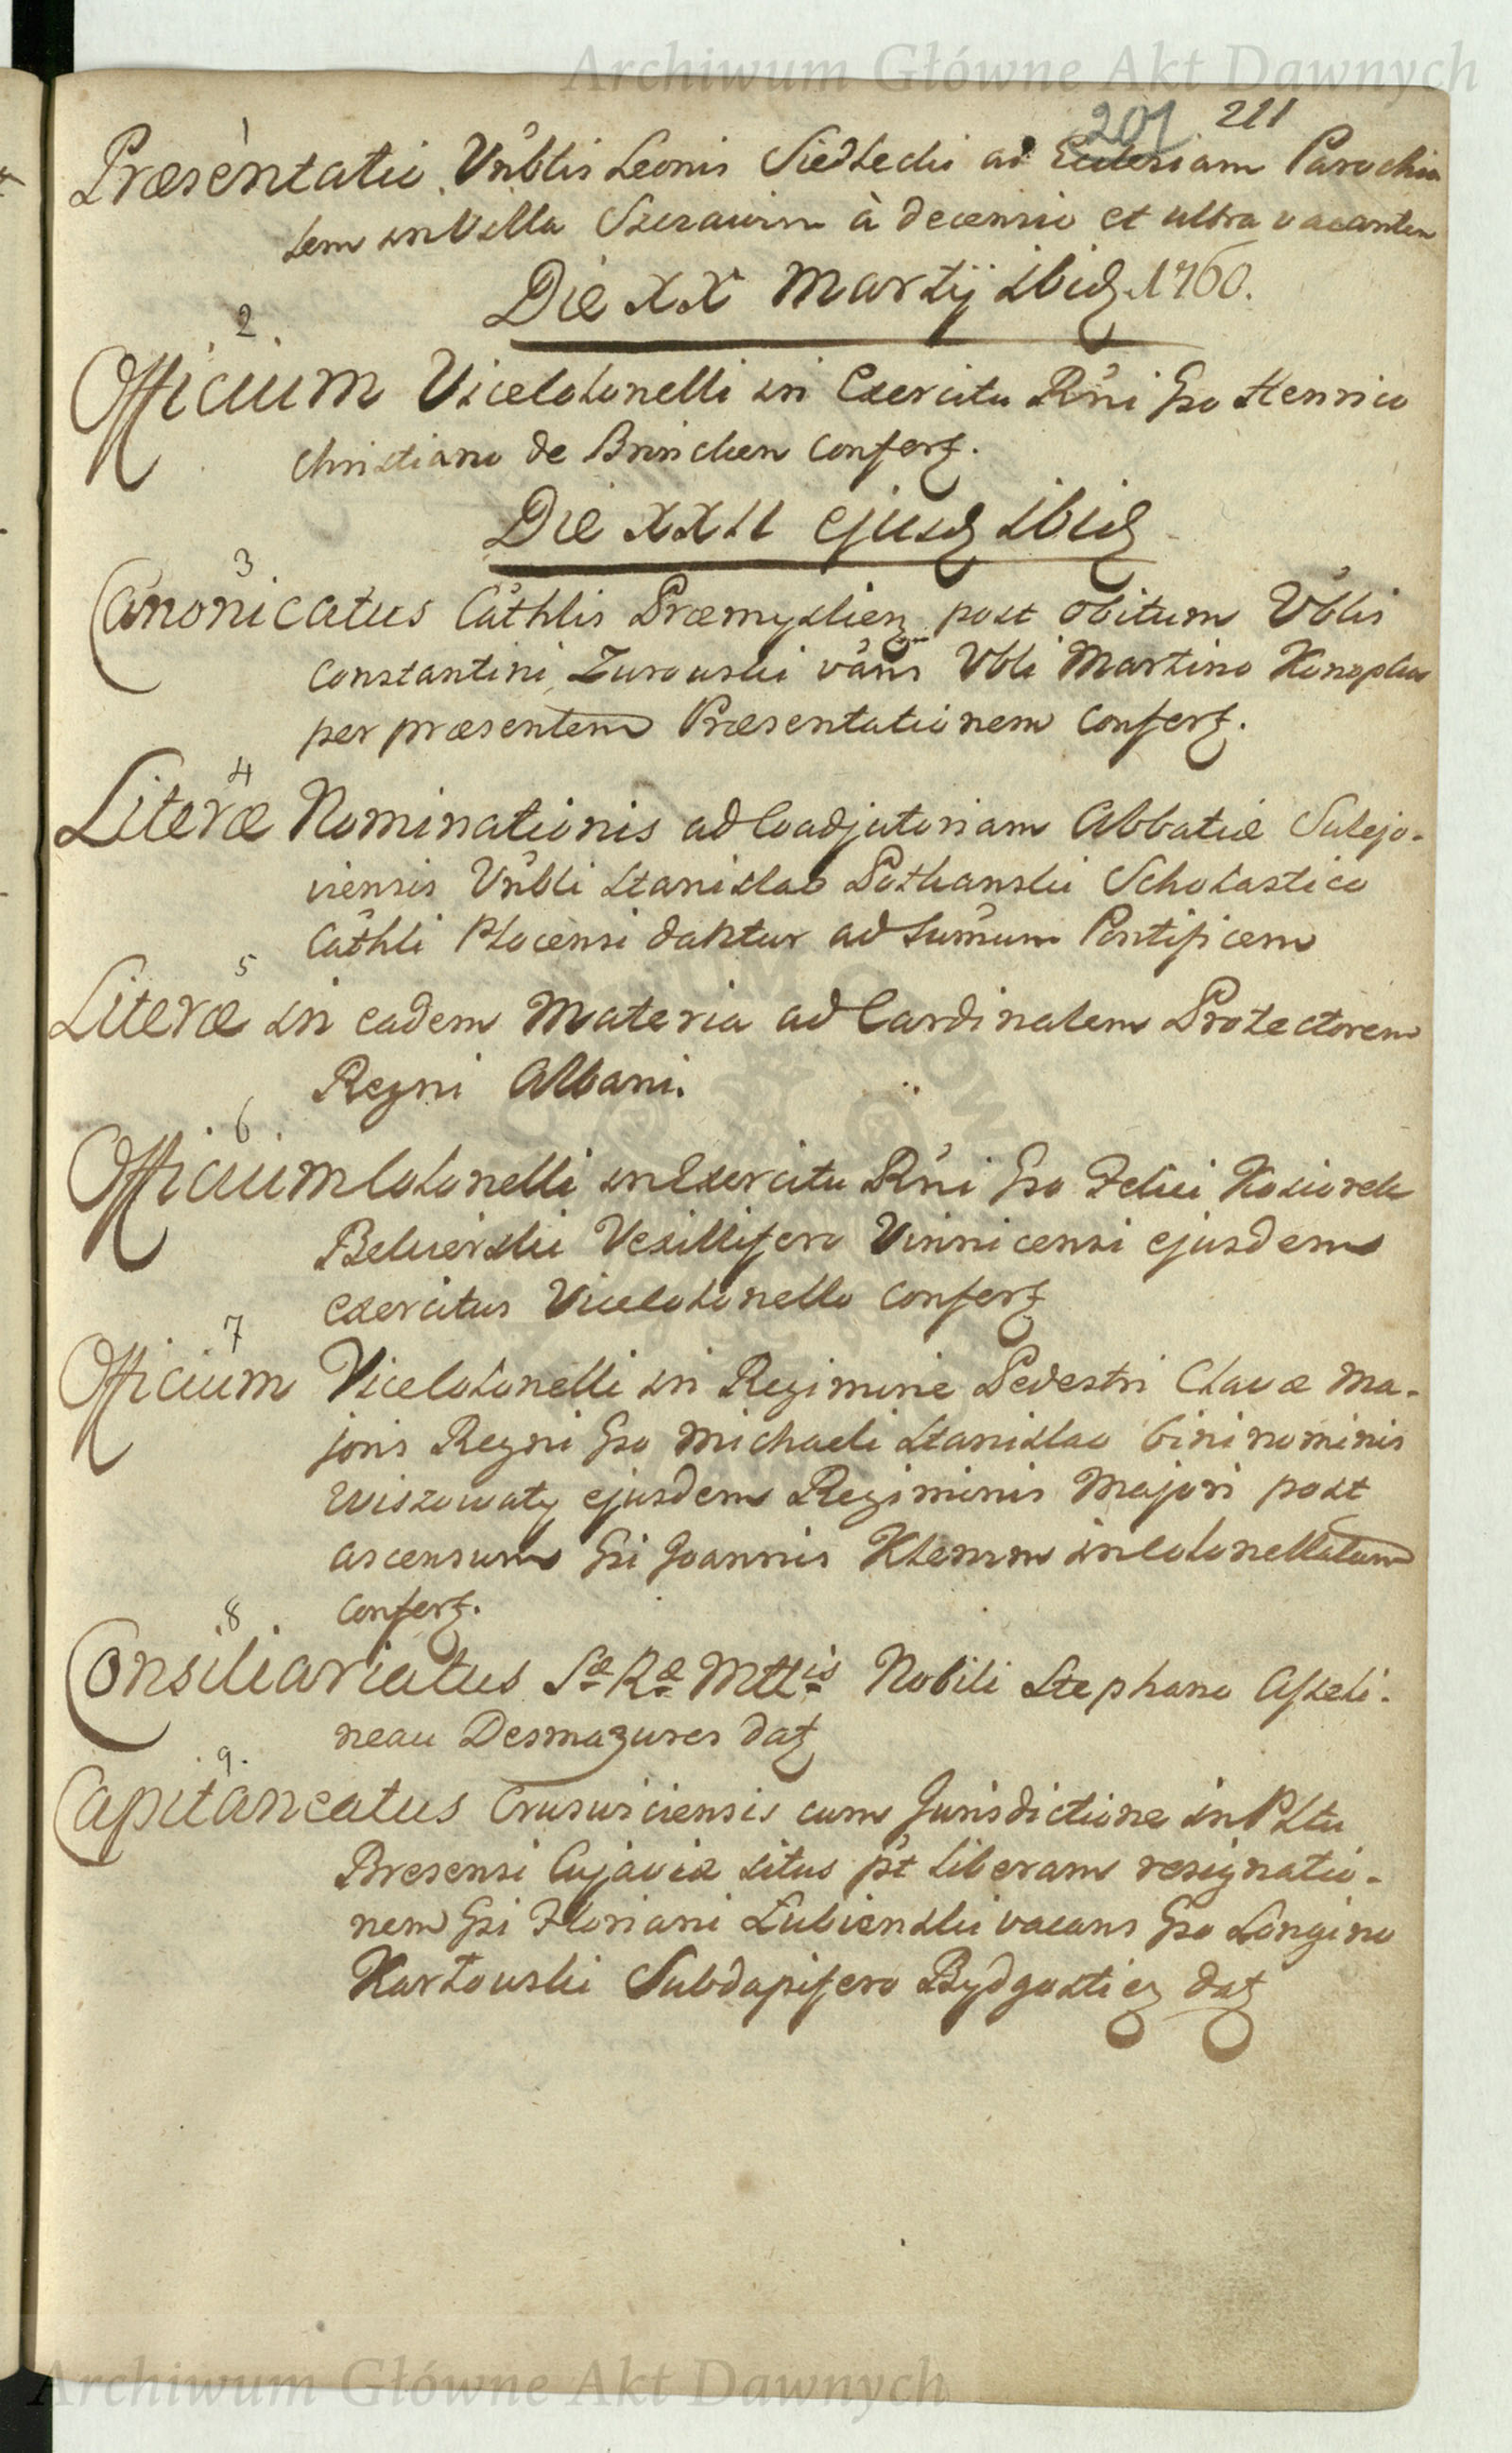 Archiwum Główne Akt Dawnych
201 211
1
Præsentatio Vnblis Leonis Siedlecki ad Ecclesiam Parochia
lem in Villa Szczawin à decennio et ultra vacantem
Die XX Martij ibidz 1760.
2.
Officium Vicecolonelli in Exercitu Rni Gso Henrico
Christiano de Brincken Confertz.
Die XXII ejusdz ibidz
3
Canonicatus Cathlis Præmyslienz post obitum Vblis
Constantini Zurowski vans Vbli Martino Konopka
per præsentem Præsentationem Confertz.
4
Literæ Nominationis ad Coadjutoriam Abbatiæ Sulejo-
viensis Vnbli Stanislao Pothanski Scholastico
Cathli Plocensi dantur ad Sumum Pontificem
5
Literæ in eadem Materia ad Cardinalem Protectorem
Regni Albani.
6
Officium Colonelli in Exercitu Rni Gso Felici Kosiorek
Belwerski Vexillifero Vinnicensi ejusdem
Exercitus Vicecolonello Confertz
7
Officium Vicecolonelli in Regimine Pedestri Clavæ Ma-
joris Regni Gso Michaeli Stanislao bini nominis
Wiszowaty ejusdem Regiminis Majori post
ascensum Gsi Joannis Klemm in Colonellatum
Confertz.
8
Consiliariatus Sæ Ræ Mttis Nobili Stephano Asseli-
neau Desmazures datz
9.
Capitaneatus Crusviciensis cum Jurisdictione in Pltu
Bresensi Cujaviæ situs pt liberam resignatio-
nem Gsi Floriani Łubienski vacans Gso Longino
Karłowski Subdapifero Bydgosticz datz
Archiwum Główne Akt Dawnych